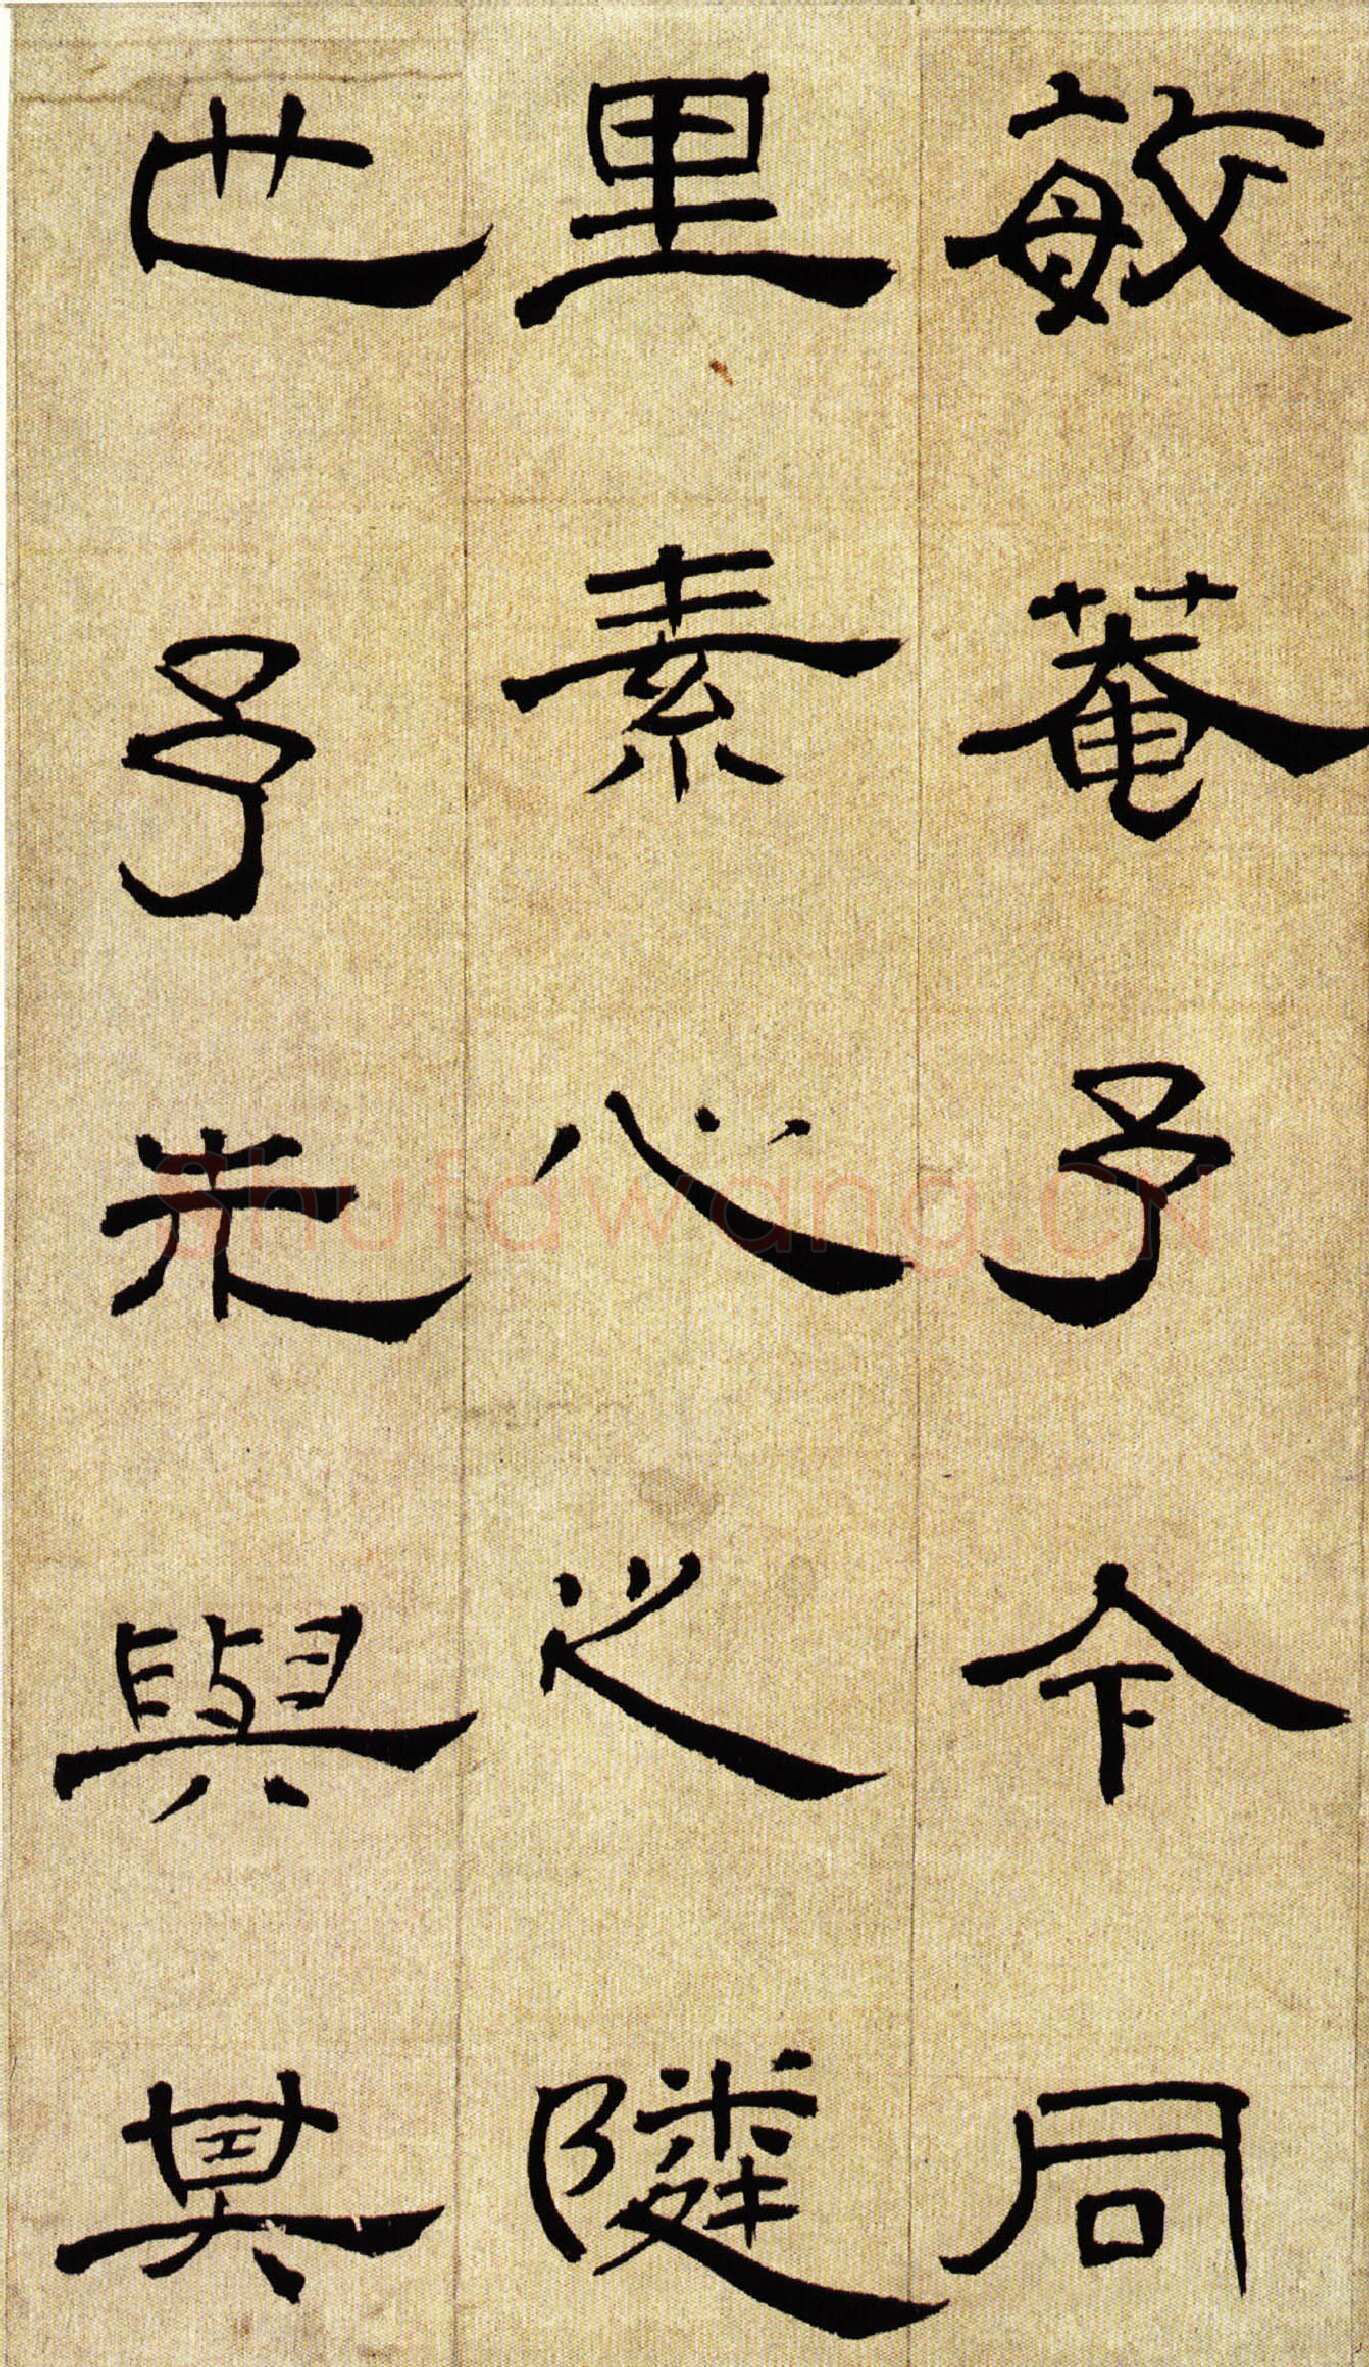 敏菴予令同
里素心之隣
也予先與其
Shufawang.CN